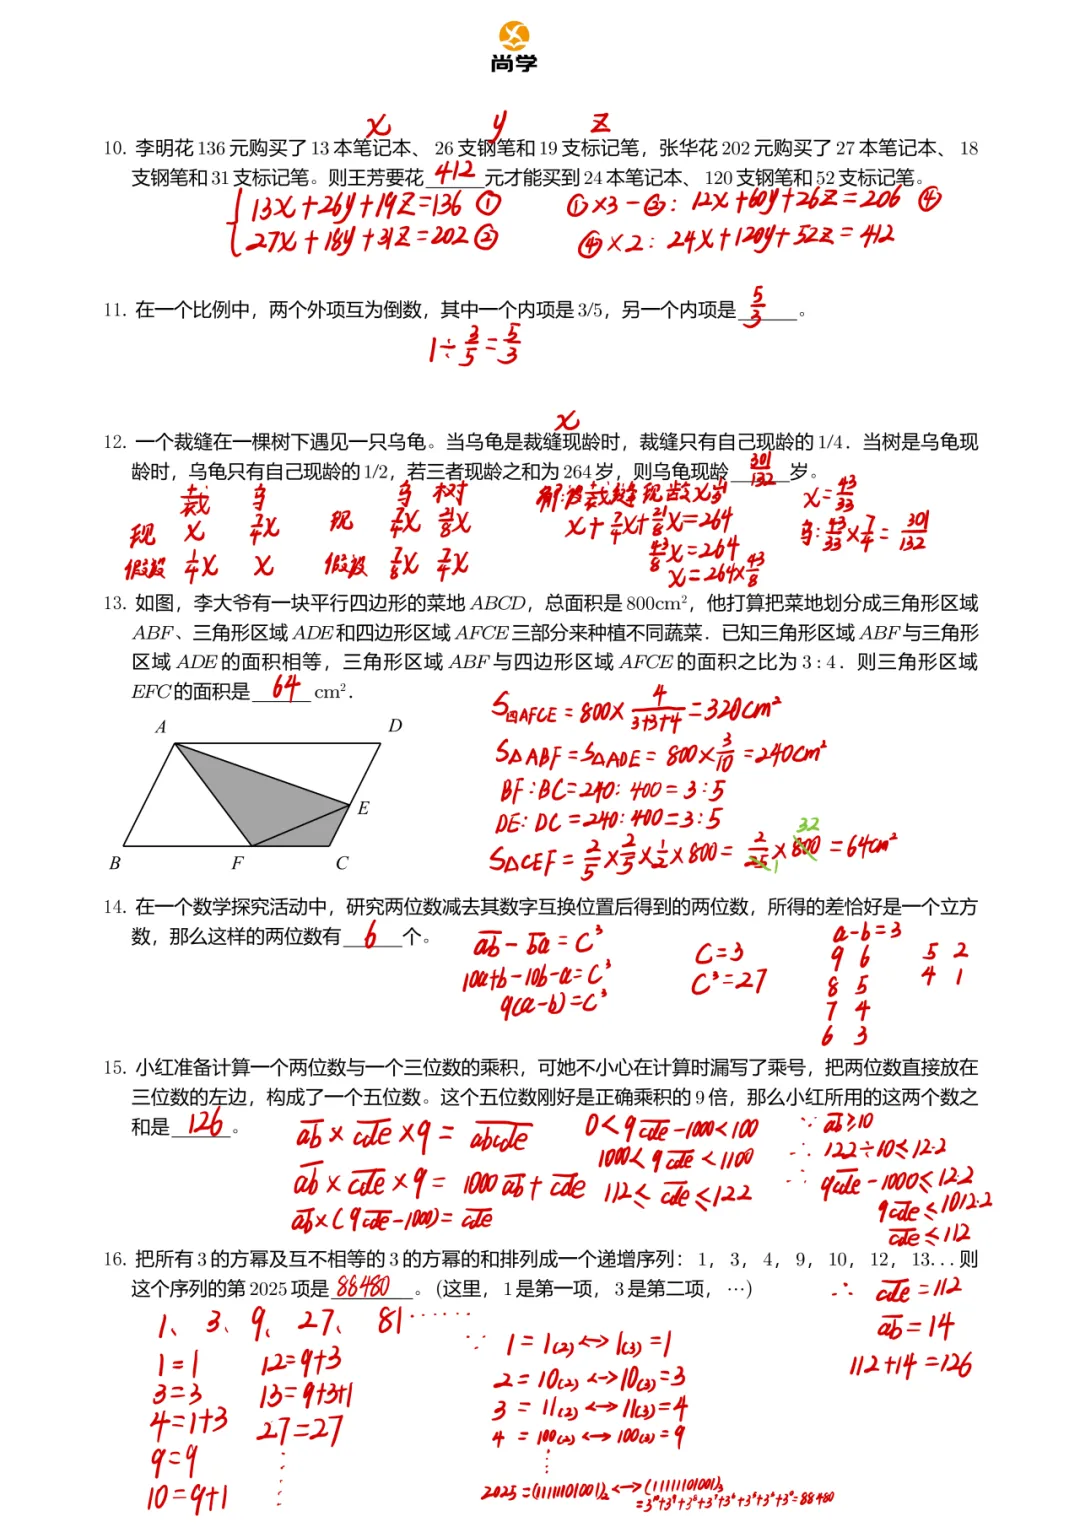 尚学
x y z
10. 李明花 136 元购买了 13 本笔记本、 26 支钢笔和 19 支标记笔，张华花 202 元购买了 27 本笔记本、 18
支钢笔和 31 支标记笔。则王芳要花 412 元才能买到 24 本笔记本、120 支钢笔和 52 支标记笔。
13x+26y+19z=136 ① ①×3-②: 12x+60y+26z=206 ④
27x+18y+31z=202 ② ④×2: 24x+120y+52z=412
11. 在一个比例中，两个外项互为倒数，其中一个内项是 3/5，另一个内项是 5/3 。
1÷3/5=5/3
x
12. 一个裁缝在一棵树下遇见一只乌龟。当乌龟是裁缝现龄时，裁缝只有自己现龄的 1/4．当树是乌龟现
龄时，乌龟只有自己现龄的 1/2，若三者现龄之和为 264 岁，则乌龟现龄 301/132 岁。
裁 乌 乌 树 解:设裁缝现龄x岁 x=43/33
现 x 7/4x 现 7/4x 21/8x x+7/4x+21/8x=264 乌:43/33×7/4=301/132
43/8x=264
假设 1/4x x 假设 7/8x 7/4x x=264×43/8
13. 如图，李大爷有一块平行四边形的菜地 ABCD，总面积是 800cm²，他打算把菜地划分成三角形区域
ABF、三角形区域 ADE 和四边形区域 AFCE 三部分来种植不同蔬菜．已知三角形区域 ABF 与三角形
区域 ADE 的面积相等，三角形区域 ABF 与四边形区域 AFCE 的面积之比为 3 : 4．则三角形区域
EFC 的面积是 64 cm².
S四AFCE=800×4/(3+3+4)=320cm²
A D
S△ABF=S△ADE=800×3/10=240cm²
BF:BC=240:400=3:5
E
DE:DC=240:400=3:5
32
S△CEF=2/5×2/5×1/2×800=2/25×800=64cm²
1
B F C
14. 在一个数学探究活动中，研究两位数减去其数字互换位置后得到的两位数，所得的差恰好是一个立方
数，那么这样的两位数有 6 个。
ab-ba=C³ C=3 a-b=3
10a+b-10b-a=C³ C³=27 9 6 5 2
9(a-b)=C³ 8 5 4 1
7 4
6 3
15. 小红准备计算一个两位数与一个三位数的乘积，可她不小心在计算时漏写了乘号，把两位数直接放在
三位数的左边，构成了一个五位数。这个五位数刚好是正确乘积的 9 倍，那么小红所用的这两个数之
和是 126 。
ab×cde×9=abcde 0<9cde-1000<100 ∵ab≥10
1000<9cde<1100 ∴122÷10≤12.2
ab×cde×9=1000ab+cde 112≤cde≤122 ∴9cde-1000≤12.2
ab×(9cde-1000)=cde 9cde≤1012.2
cde≤112
16. 把所有 3 的方幂及互不相等的 3 的方幂的和排列成一个递增序列：1，3，4，9，10，12，13...则
这个序列的第 2025 项是 88480 。(这里，1 是第一项，3 是第二项，⋯)
∴ cde=112
ab=14
112+14=126
1、3、9、27、81······
1=1 12=9+3 ∵ 1=1(2)↔1(3)=1
3=3 13=9+3+1 2=10(2)↔10(3)=3
4=1+3 27=27 3=11(2)↔11(3)=4
9=9 4=100(2)↔100(3)=9
10=9+1
2025=(11111101001)2↔(11111101001)3
=3¹⁰+3⁹+3⁸+3⁷+3⁶+3⁵+3³+3⁰=88480